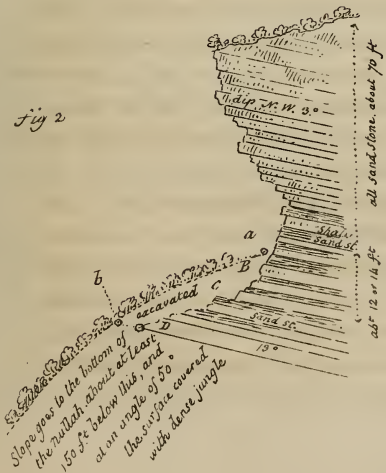 fig 2
dip N.W. 3°
all sand stone. about 70 ft
abt 12 or 14 ft
shaly
sand st.
a
B
C
b
excavated
D
sand st.
19°
Slope goes to the bottom of
the nullah about at least
150 ft below this, and
at an angle of 50°
the surface covered
with dense jungle